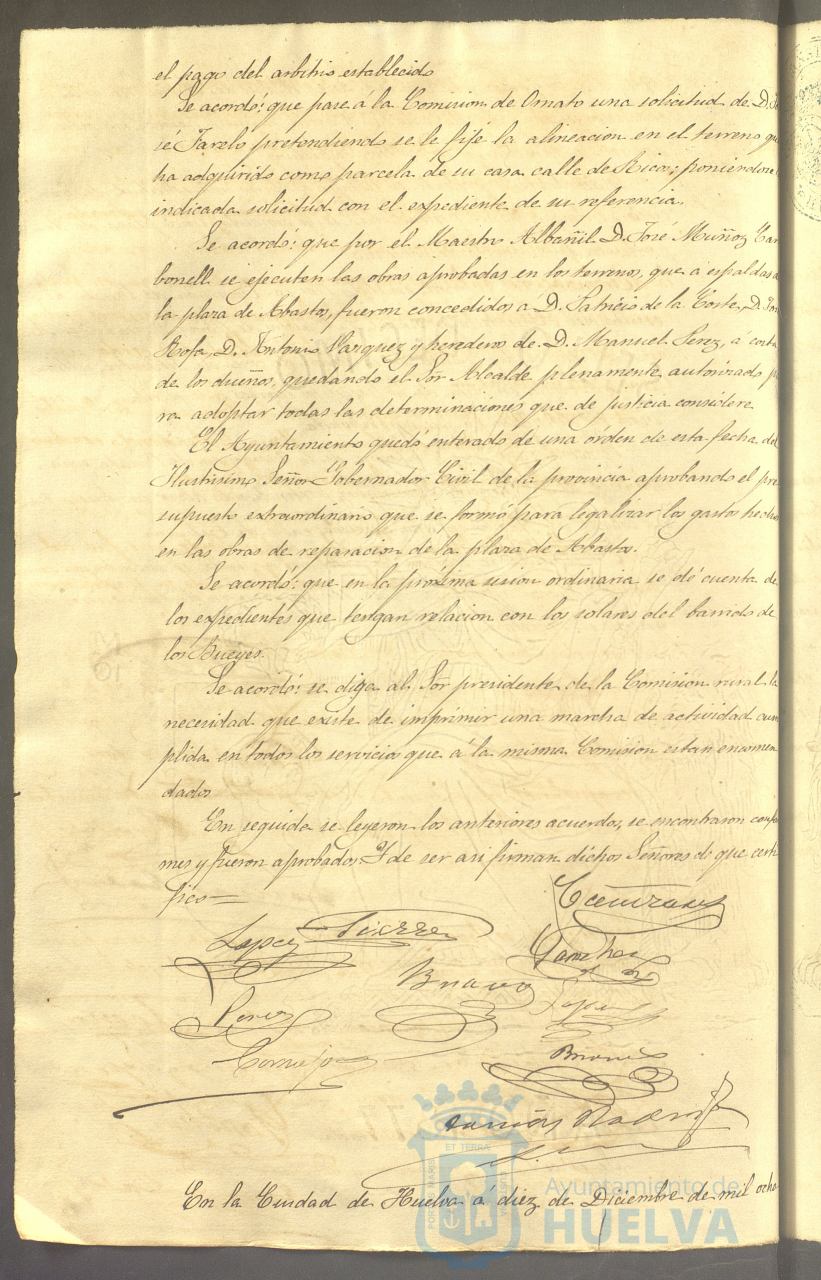 el pago del arbitrio establecido
Se acordó: que pase á la Comision de Ornato una solicitud de D. Jo
sé Farelo pretendiendo se le fije la alineacion en el terreno que
ha adquirido como parcela de su casa calle de Ricos; poniendose
indicada solicitud con el expediente de su referencia.
Se acordó: que por el Maestro Albañil D. José Muñoz Car
bonell se ejecuten las obras aprobadas en los terrenos, que á espaldas
la plaza de Abastos, fueron concedidos á D. Patricio de la Corte, D.
Rofa, D. Antonio Vazquez y herederos de D. Manuel Perez, á costa
de los dueños, quedando el Sor Alcalde plenamente autorizado pa
ra adoptar todas las determinaciones que de justicia considere
El Ayuntamiento quedó enterado de una órden de esta fecha del
Ilustrisimo Señor Gobernador Civil de la provincia aprobando el pre
supuesto extraordinario que se formó para legalizar los gastos hechos
en las obras de reparacion de la plaza de Abastos.
Se acordó: que en la próxima sesion ordinaria se dé cuenta de
los expedientes que tengan relacion con los solares del barrio de
los Bueyes.
Se acordó: se diga al Sor presidente de la Comisión rural la
necesidad que existe de imprimir una marcha de actividad cum
plida en todos los servicios que á la misma Comision estan encomen
dados
En seguida se leyeron los anteriores acuerdos, se encontraron confor
mes y fueron aprobados. Y de ser asi firman dichos Señores de que certi
fico=
Lopez
Sanchez
Bravo
Perez
Lopez
Cornejo
En la Ciudad de Huelva á diez de Diciembre de mil ocho
Ayuntamiento de
HUELVA